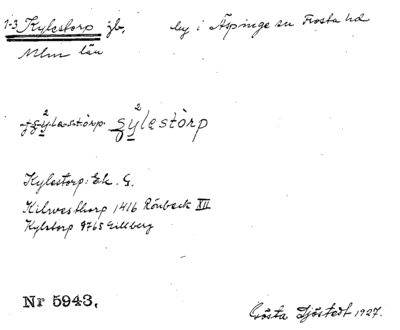 1-3 Kylestorp jb. by i Äspinge sn Frosta hd
Mlm län
ç²ylestòrp
Kylestorp: Ek. G.
Kilwesthorp 1416 Rönbeck XII
Kylstorp 9765 Gillberg
Nr 5943.
Gösta Sjöstedt 1927.